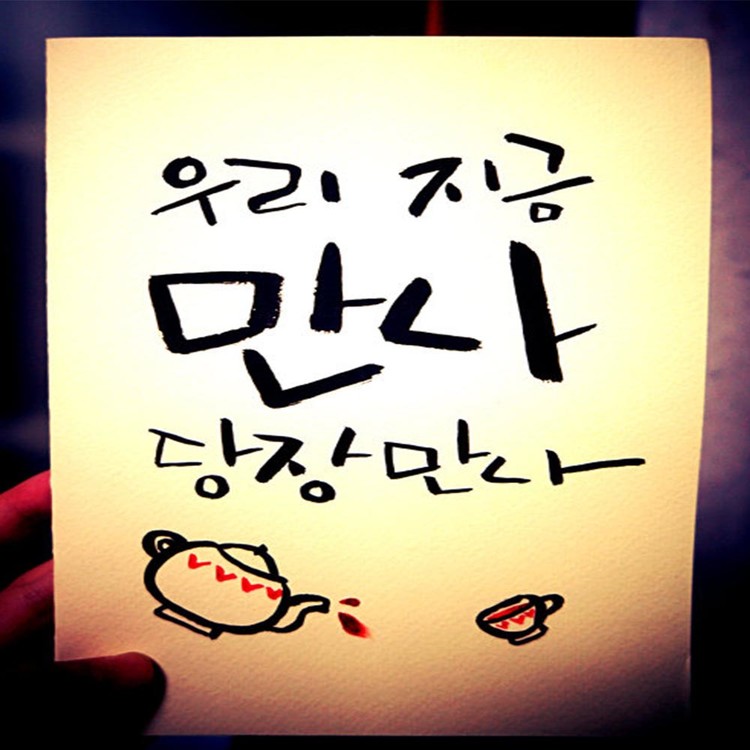 우리 지금
만나
당장만나